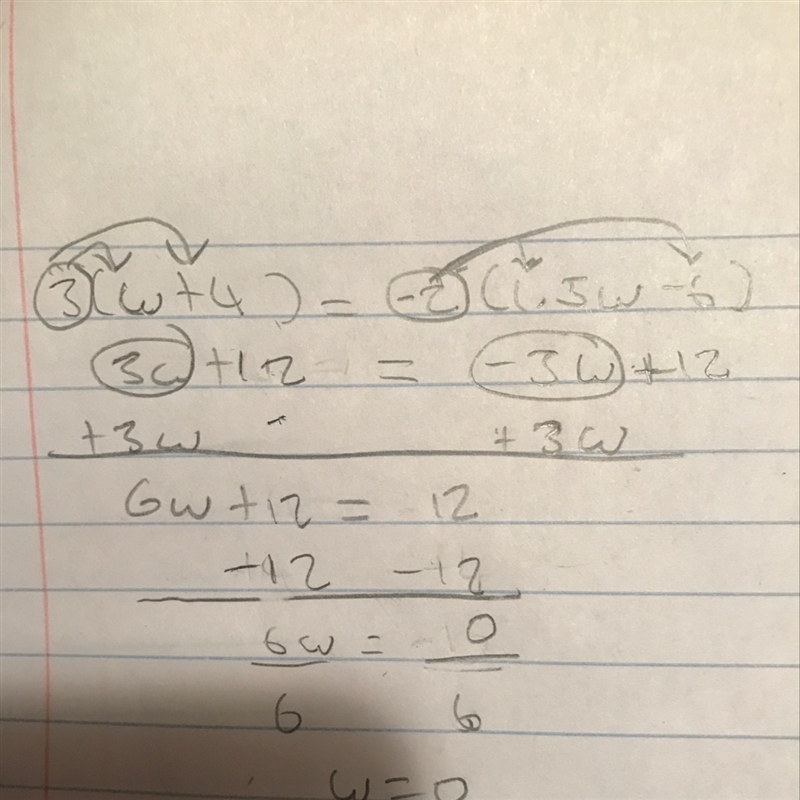 3(w+4) = -2(1.5w-6)
3w+12 = -3w+12
+3w +3w
6w+12 = 12
-12 -12
6w = 0
6 6
w=0